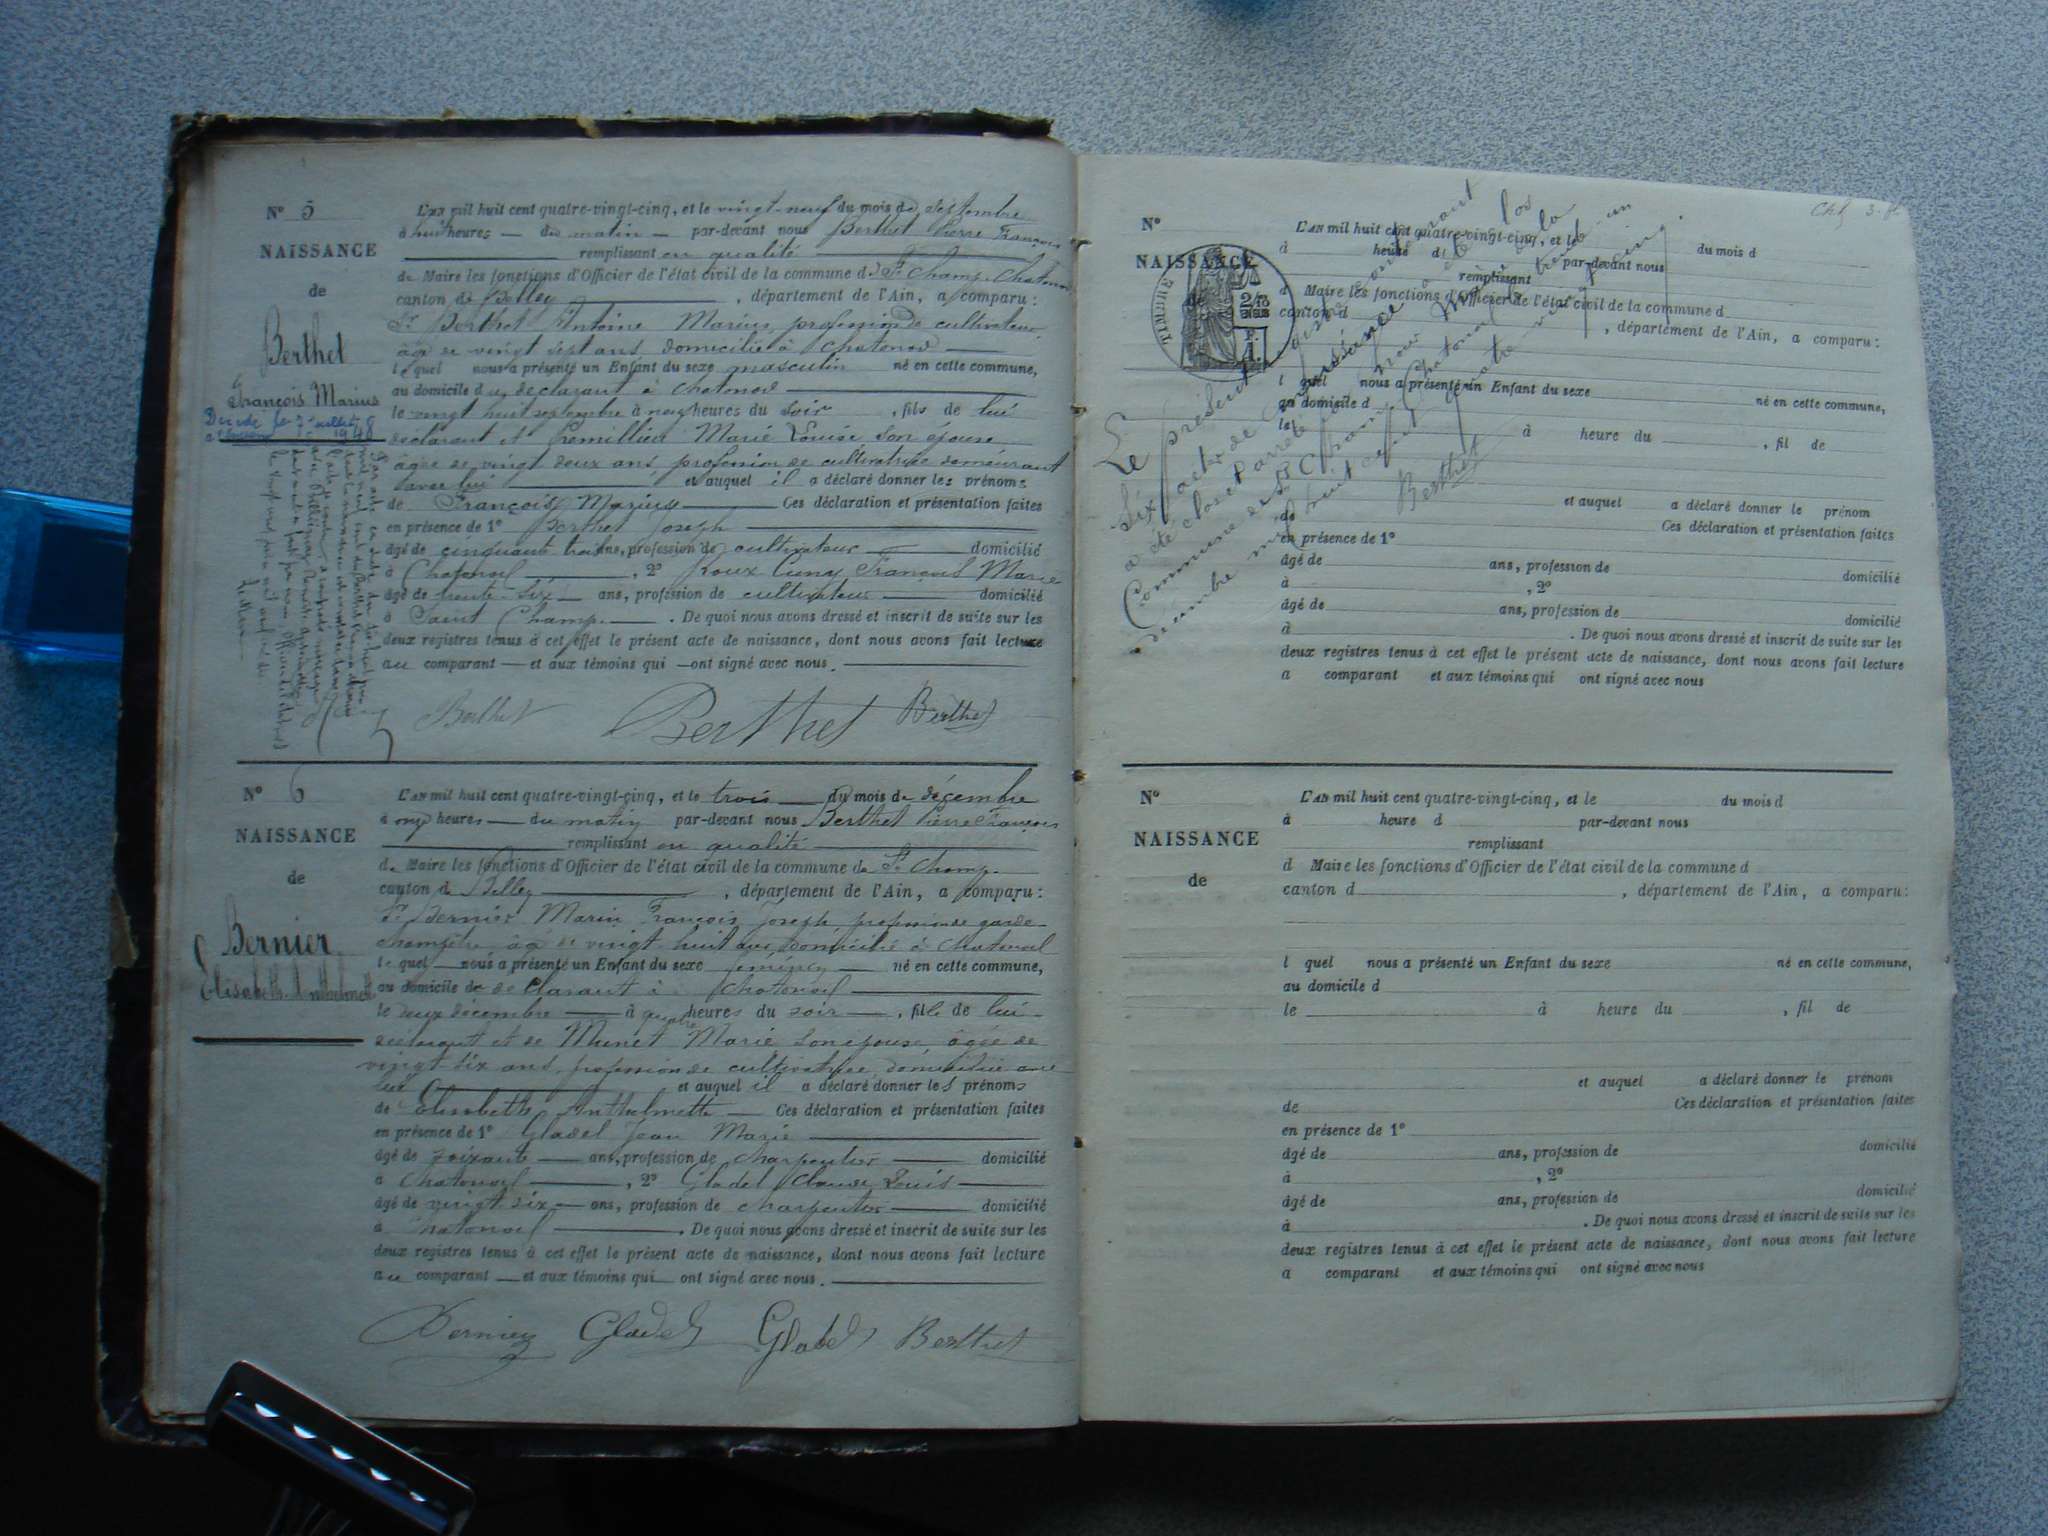 N° 5
NAISSANCE
de
Berthet
François Marius
Décédé le 7 juillet
1948
L'AN mil huit cent quatre-vingt-cinq, et le vingt-neuf du mois de septembre
à huit heures du matin par-devant nous Berthet Pierre François
remplissant en qualité
de Maire les fonctions d'Officier de l'état civil de la commune de St Champ-Chatonod
canton de Belley, département de l'Ain, a comparu :
Sr Berthet Antoine Marius, profession de cultivateur
âgé de vingt sept ans domicilié à Chatonod
lequel nous a présenté un Enfant du sexe masculin né en cette commune,
au domicile du déclarant à Chatonod
le vingt huit septembre à neuf heures du soir, fils de lui
déclarant et Marie Louise son épouse
âgée de vingt deux ans, profession de cultivatrice demeurant
avec lui et auquel il a déclaré donner les prénoms
de François Marius Ces déclaration et présentation faites
en présence de 1° Berthet Joseph
âgé de cinquante trois ans, profession de cultivateur domicilié
à Chatonod, 2° Roux Cuny François Marie
âgé de trente-six ans, profession de cultivateur domicilié
à Saint Champ. De quoi nous avons dressé et inscrit de suite sur les
deux registres tenus à cet effet le présent acte de naissance, dont nous avons fait lecture
au comparant et aux témoins qui ont signé avec nous.
Berthet Berthet Berthet
N° 6
NAISSANCE
de
Bernier
Élisabeth Anthelmette
L'AN mil huit cent quatre-vingt-cinq, et le trois du mois de décembre
à onze heures du matin par-devant nous Berthet Pierre François
remplissant en qualité
de Maire les fonctions d'Officier de l'état civil de la commune de St Champ-
canton de Belley, département de l'Ain, a comparu :
Sr Bernier Marin François Joseph, profession de garde-
champêtre, âgé de vingt-huit ans, domicilié à Chatonod
lequel nous a présenté un Enfant du sexe féminin né en cette commune,
au domicile du déclarant à Chatonod
le deux décembre à quatre heures du soir, fille de lui
déclarant et de Munet Marie son épouse, âgée de
vingt-six ans, profession de cultivatrice, domiciliée avec
lui et auquel il a déclaré donner les prénoms
de Élisabeth Anthelmette Ces déclaration et présentation faites
en présence de 1° Gladel Jean Marie
âgé de soixante ans, profession de charpentier domicilié
à Chatonod, 2° Gladel Claude Louis
âgé de vingt-six ans, profession de charpentier domicilié
à Chatonod. De quoi nous avons dressé et inscrit de suite sur les
deux registres tenus à cet effet le présent acte de naissance, dont nous avons fait lecture
au comparant et aux témoins qui ont signé avec nous.
Bernier Gladel Gladel Berthet
N°
NAISSANCE
de
TIMBRE
L'AN mil huit cent quatre-vingt-cinq, et le du mois d
à heure d par-devant nous
remplissant
d Maire les fonctions d'Officier de l'état civil de la commune d
canton d , département de l'Ain, a comparu :
l quel nous a présenté un Enfant du sexe né en cette commune,
au domicile d
le à heure du , fil de
et auquel a déclaré donner le prénom
de Ces déclaration et présentation faites
en présence de 1°
âgé de ans, profession de domicilié
à , 2°
âgé de ans, profession de domicilié
à . De quoi nous avons dressé et inscrit de suite sur les
deux registres tenus à cet effet le présent acte de naissance, dont nous avons fait lecture
a comparant et aux témoins qui ont signé avec nous
Le présent contenant
Six actes de naissance
a été clos et arrêté par nous Maire de la
Commune de St Champ Chatonod le trente-un
décembre mil huit cent quatre vingt cinq.
Berthet
N°
NAISSANCE
de
L'AN mil huit cent quatre-vingt-cinq, et le du mois d
à heure d par-devant nous
remplissant
d Maire les fonctions d'Officier de l'état civil de la commune d
canton d , département de l'Ain, a comparu :
l quel nous a présenté un Enfant du sexe né en cette commune,
au domicile d
le à heure du , fil de
et auquel a déclaré donner le prénom
de Ces déclaration et présentation faites
en présence de 1°
âgé de ans, profession de domicilié
à , 2°
âgé de ans, profession de domicilié
à . De quoi nous avons dressé et inscrit de suite sur les
deux registres tenus à cet effet le présent acte de naissance, dont nous avons fait lecture
a comparant et aux témoins qui ont signé avec nous